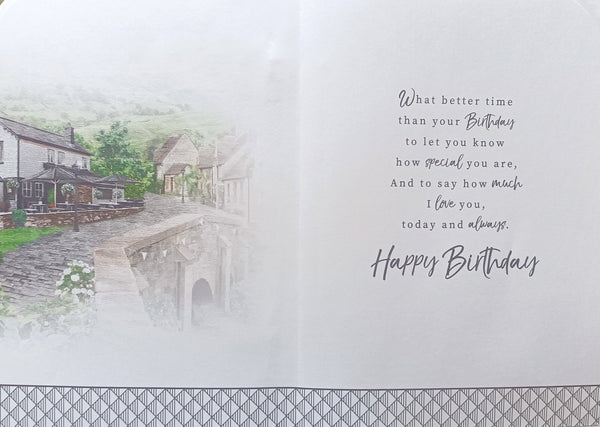 What better time
than your Birthday
to let you know
how special you are,
And to say how much
I love you,
today and always.
Happy Birthday